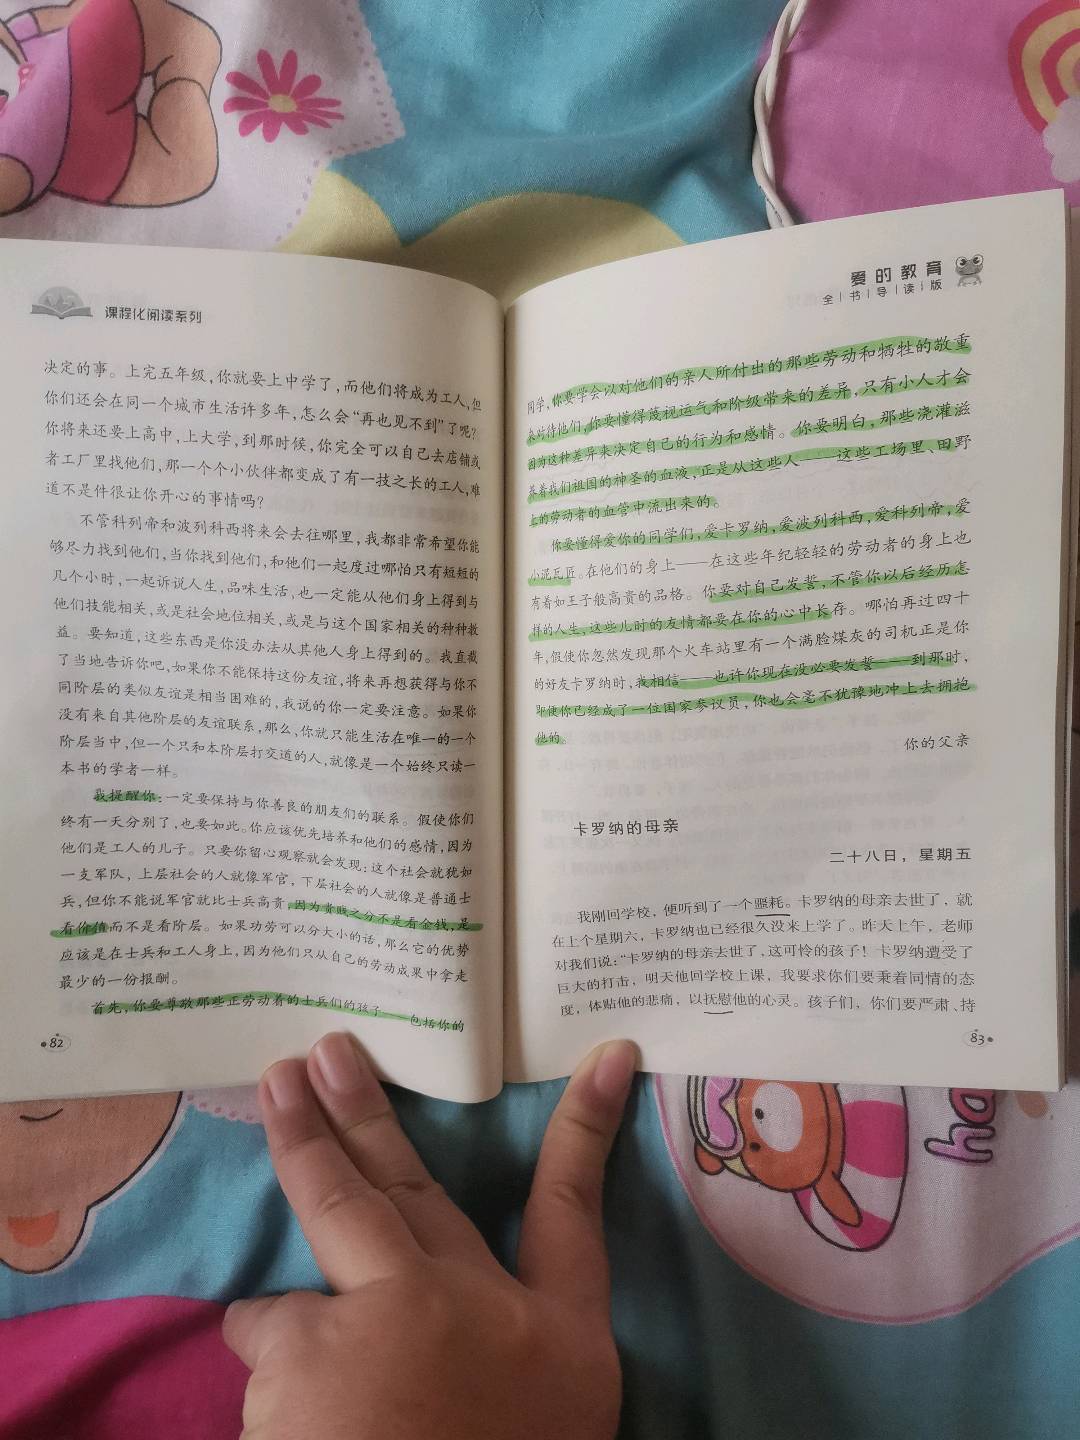 课程化阅读系列
决定的事。上完五年级，你就要上中学了，而他们将成为工人，但
你们还会在同一个城市生活许多年，怎么会“再也见不到”了呢？
你将来还要上高中，上大学，到那时候，你完全可以自己去店铺或
者工厂里找他们，那一个个小伙伴都变成了有一技之长的工人，难
道不是件很让你开心的事情吗？
不管科列帝和波列科西将来会去往哪里，我都非常希望你能
够尽力找到他们，当你找到他们，和他们一起度过哪怕只有短短的
几个小时，一起诉说人生，品味生活，也一定能从他们身上得到与
他们技能相关，或是社会地位相关，或是与这个国家相关的种种教
益。要知道，这些东西是你没办法从其他人身上得到的。我直截
了当地告诉你吧，如果你不能保持这份友谊，将来再想获得与你不
同阶层的类似友谊是相当困难的，我说的你一定要注意。如果你
没有来自其他阶层的友谊联系，那么，你就只能生活在唯一的一个
阶层当中，但一个只和本阶层打交道的人，就像是一个始终只读一
本书的学者一样。
我提醒你：一定要保持与你善良的朋友们的联系。假使你们
终有一天分别了，也要如此。你应该优先培养和他们的感情，因为
他们是工人的儿子。只要你留心观察就会发现：这个社会就犹如
一支军队，上层社会的人就像军官，下层社会的人就像是普通士
兵，但你不能说军官就比士兵高贵，因为贵贱之分不是看金钱，是
看价值而不是看阶层。如果功劳可以分大小的话，那么它的优势
应该是在士兵和工人身上，因为他们只从自己的劳动成果中拿走
最少的一份报酬。
首先，你要尊敬那些正劳动着的士兵们的孩子——包括你的
82
爱的教育
全书导读版
同学，你要学会以对他们的亲人所付出的那些劳动和牺牲的敬重
来对待他们，你要懂得蔑视运气和阶级带来的差异，只有小人才会
因为这种差异来决定自己的行为和感情。你要明白，那些浇灌滋
养着我们祖国的神圣的血液，正是从这些人——这些工场里、田野
上的劳动者的血管中流出来的。
你要懂得爱你的同学们，爱卡罗纳，爱波列科西，爱科列帝，爱
小泥瓦匠。在他们的身上——在这些年纪轻轻的劳动者的身上也
有着如王子般高贵的品格。你要对自己发誓，不管你以后经历怎
样的人生，这些儿时的友情都要在你的心中长存。哪怕再过四十
年，假使你忽然发现那个火车站里有一个满脸煤灰的司机正是你
的好友卡罗纳时，我相信——也许你现在没必要发誓——到那时，
即使你已经成了一位国家参议员，你也会毫不犹豫地冲上去拥抱
他的。
你的父亲
卡罗纳的母亲
二十八日，星期五
我刚回学校，便听到了一个噩耗。卡罗纳的母亲去世了，就
在上个星期六，卡罗纳也已经很久没来上学了。昨天上午，老师
对我们说：“卡罗纳的母亲去世了，这可怜的孩子！卡罗纳遭受了
巨大的打击，明天他回学校上课，我要求你们要秉着同情的态
度，体贴他的悲痛，以抚慰他的心灵。孩子们，你们要严肃、持
83
ha